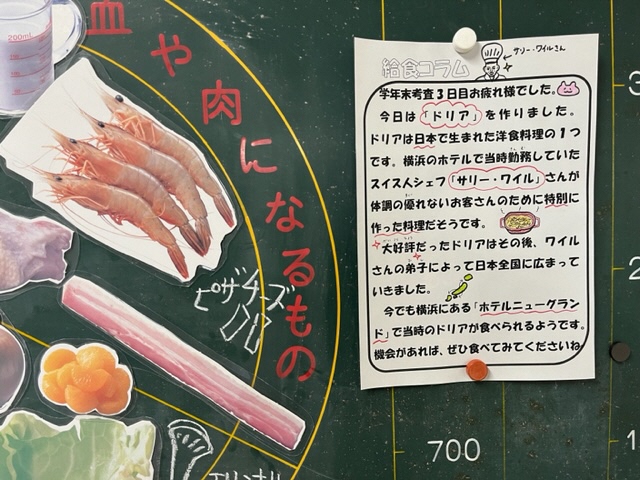 血や肉になるもの
200mL
ピザチーズ
エリンギ
サリー・ワイルさん
給食コラム
学年末考査3日目お疲れ様でした。
今日は「ドリア」を作りました。
ドリアは日本で生まれた洋食料理の1つ
です。横浜のホテルで当時勤務していた
スイス人シェフ「サリー・ワイル」さんが
体調の優れないお客さんのために特別に
作った料理だそうです。
大好評だったドリアはその後、ワイル
さんの弟子によって日本全国に広まって
いきました。
今でも横浜にある「ホテルニューグラン
ド」で当時のドリアが食べられるようです。
機会があれば、ぜひ食べてみてくださいね
3
2
1
700